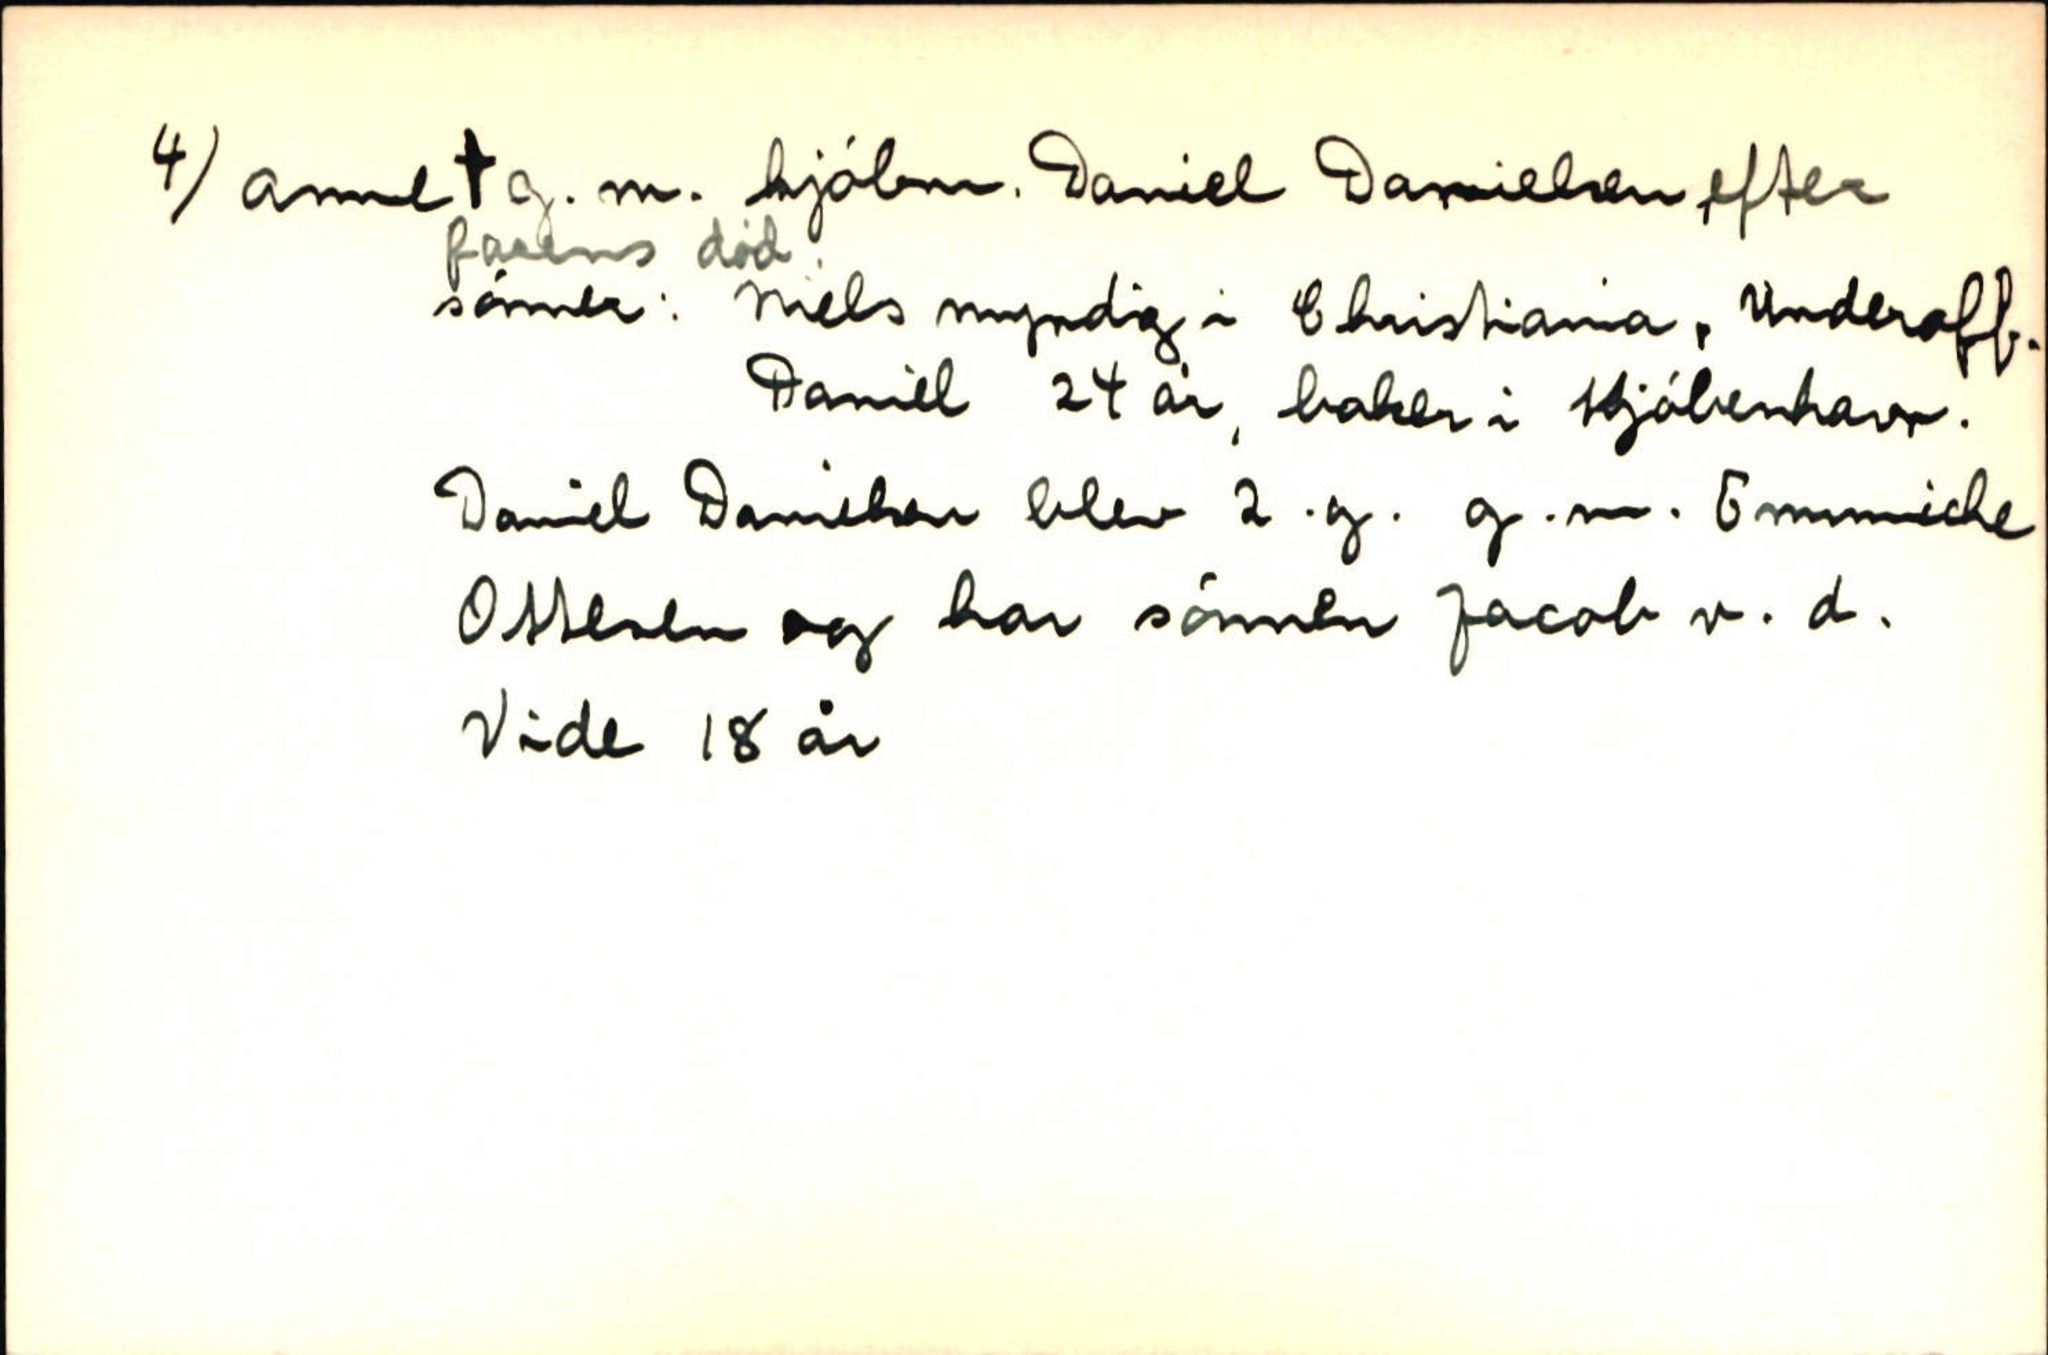 4) Anne † g. m. kjóbm. Daniel Danielsen efter
farens död.
sónner: Niels myndig i Christiania, Underoff.
Daniel 24 år, baker i Kjóbenhavn.
Daniel Danielsen blev 2. g. g. m. Emmiche
Ottesen og har sónnen Jacob v. d.
Vide 18 år